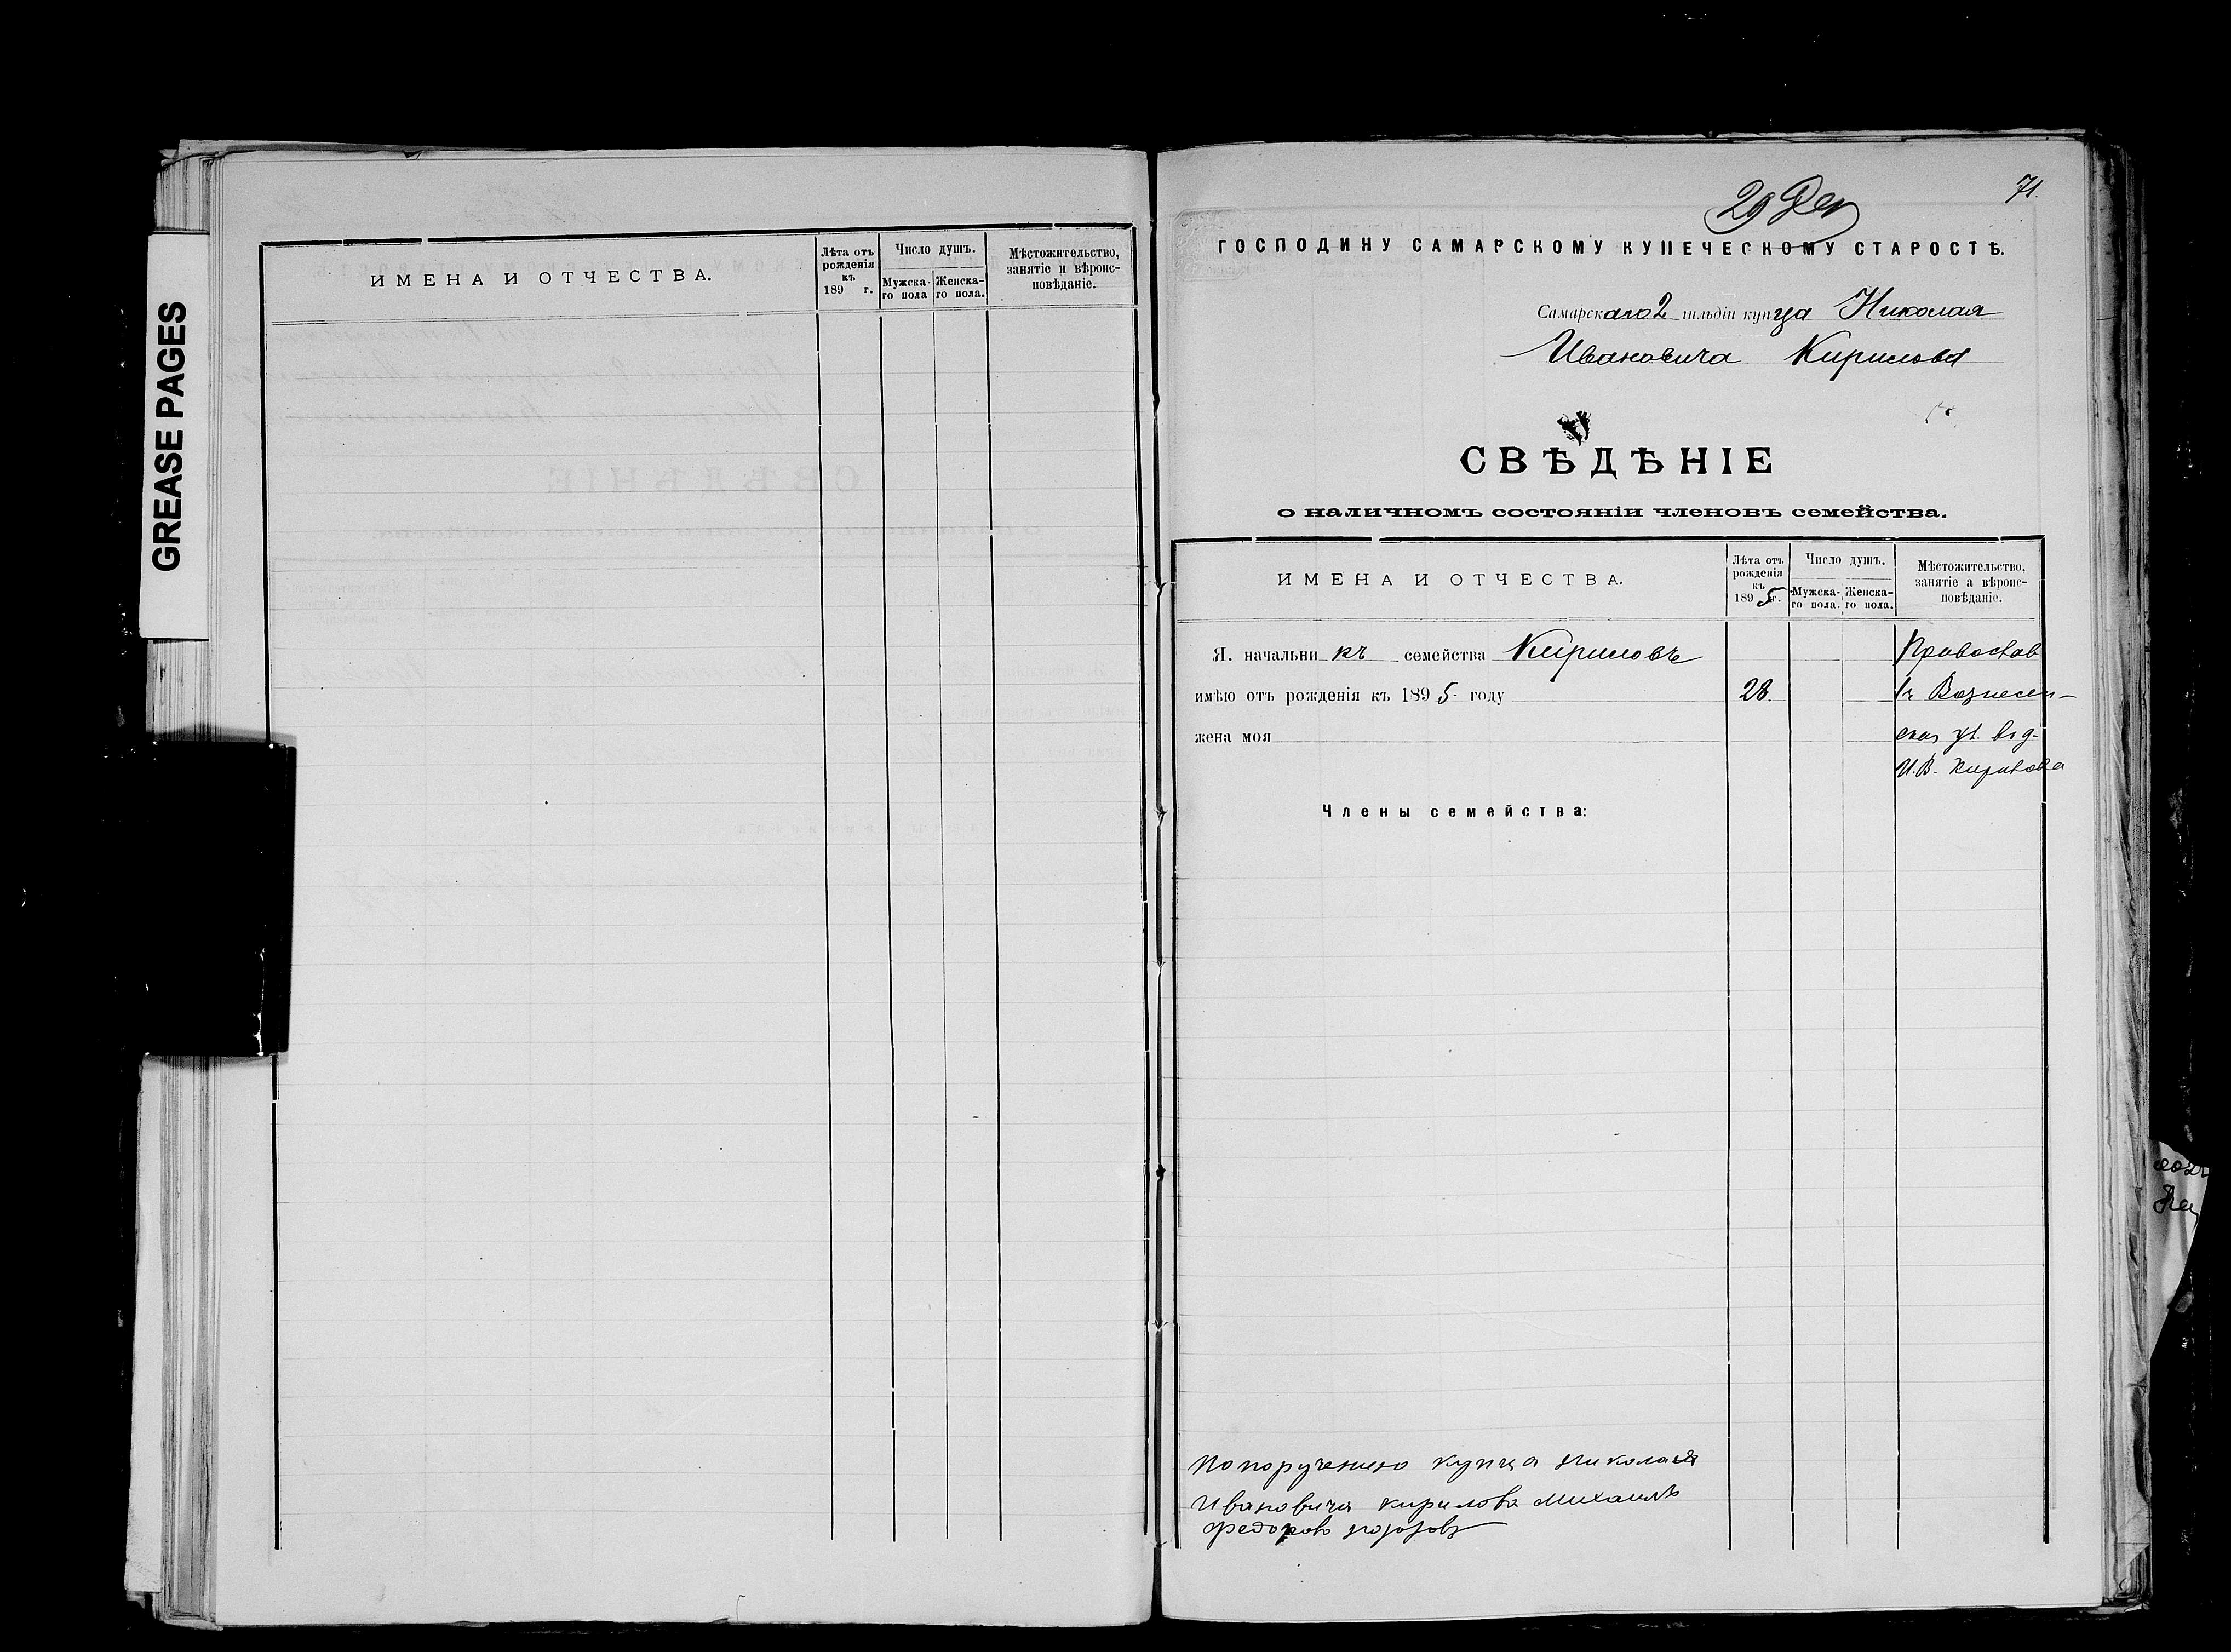 GREASE PAGES
ИМЕНА И ОТЧЕСТВА.
Лѣта отъ рожденія къ 189 г.
Число душъ.
Мужска-го пола
Женска-го пола.
Мѣстожительство, занятіе и вѣроис-повѣданіе.
71.
29 Дек
ГОСПОДИНУ САМАРСКОМУ КУПЕЧЕСКОМУ СТАРОСТѢ.
Самарскаго 2 гильдіи купца Николая
Ивановича Кирилова
СВѢДѢНІЕ
о наличномъ состояніи членовъ семейства.
ИМЕНА И ОТЧЕСТВА.
Лѣта отъ рожденія къ 1895 г.
Число душъ.
Мужска-го пола.
Женска-го пола.
Мѣстожительство, занятіе а вѣроис-повѣданіе.
Я. начальникъ семейства Кириловъ
Православ
имѣю отъ рожденія къ 1895 году 28.
Вознесен-
жена моя
И.В. Кирилова
Члены семейства:
По порученію купца Николая
Ивановича Кирилова Михаилъ
Федоровъ